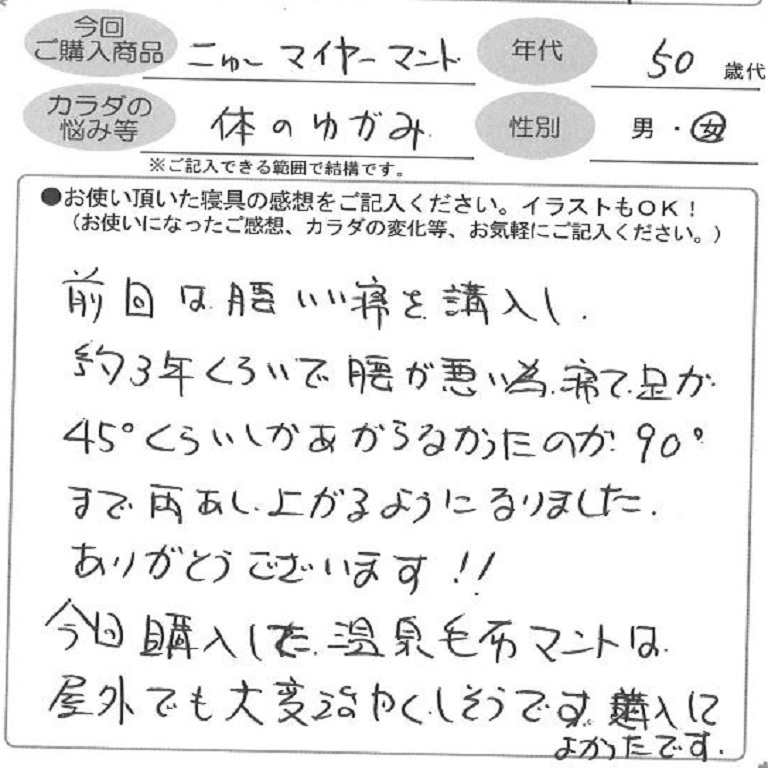 今回
ご購入商品
ニューマイヤーマント
年代
50 歳代
カラダの
悩み等
体のゆがみ
性別
男・女
※ご記入できる範囲で結構です。
●お使い頂いた寝具の感想をご記入ください。イラストもOK!
(お使いになったご感想、カラダの変化等、お気軽にご記入ください。)
前回は腰いい寝を購入し、
約3年くらいで腰が悪い為、寝て足が
45°くらいしかあがらなかったのが90°
まで両あし上がるようになりました。
ありがとうございます!!
今回購入した温泉毛布マントは
屋外でも大変あたたかくしそうです。購入して
よかったです。